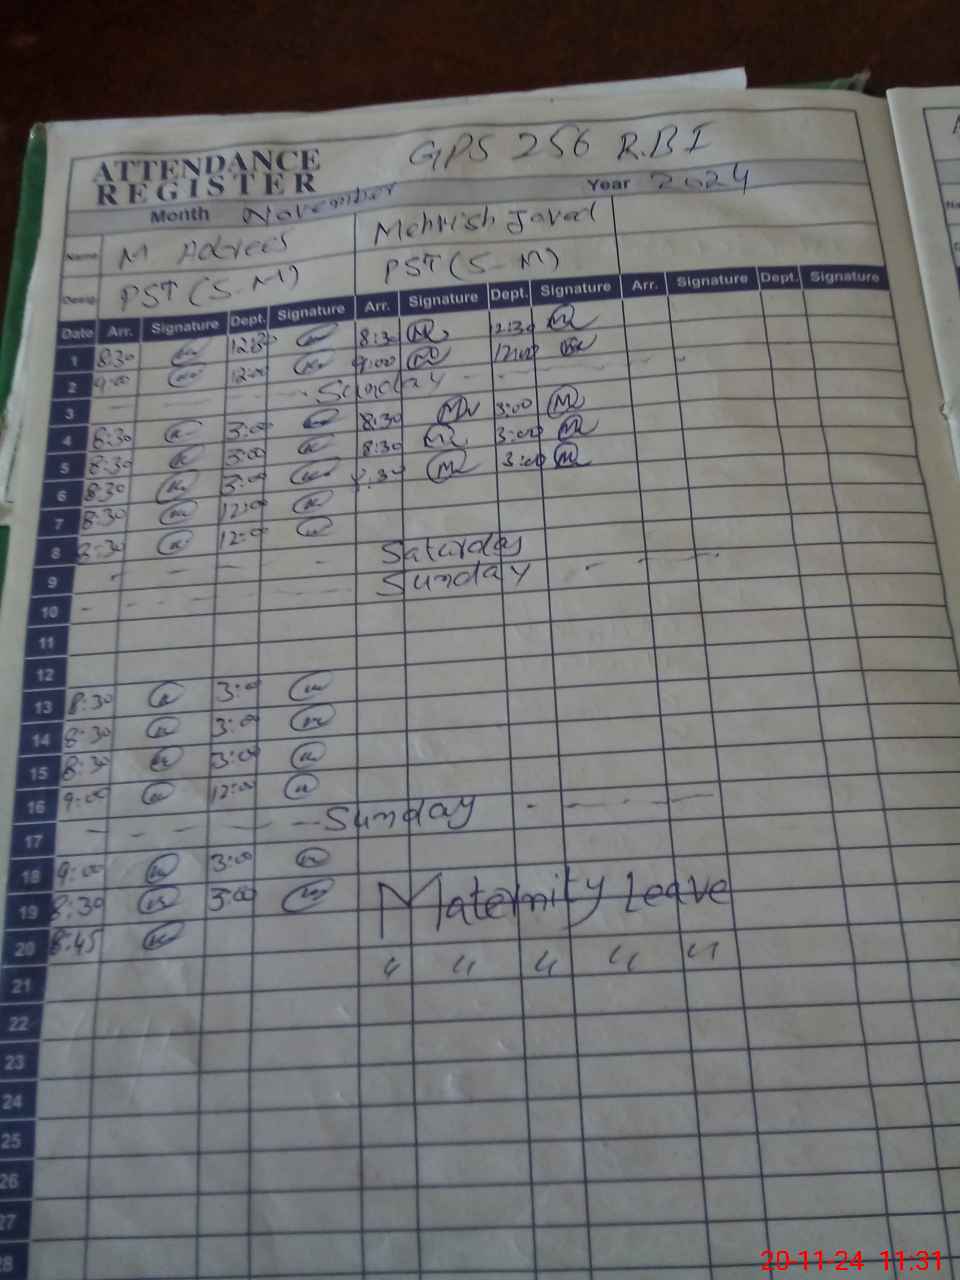 GPS 256 R.BI
ATTENDANCE
REGISTER
Month November Year 2024
Name M Adrees Mehrish Javed
Desig. PST (S-M) PST (S-M)
Date Arr. Signature Dept. Signature Arr. Signature Dept. Signature Arr. Signature Dept. Signature
1 8:30 12:30 8:30 12:30
2 9:00 12:00 9:00 12:00
3 Sunday
4 8:30 3:00 8:30 3:00
5 8:30 3:00 8:30 3:00
6 8:30 3:00 8:30 3:00
7 8:30 12:00
8 8:30 12:00
9 Saturday
10 Sunday
11
12
13 8:30 3:00
14 8:30 3:00
15 8:30 3:00
16 9:00 12:00
17 Sunday
18 9:00 3:00
19 8:30 3:00 Maternity Leave
20 8:45 " " " " "
21
22
23
24
25
26
27
28
20-11-24 11:31